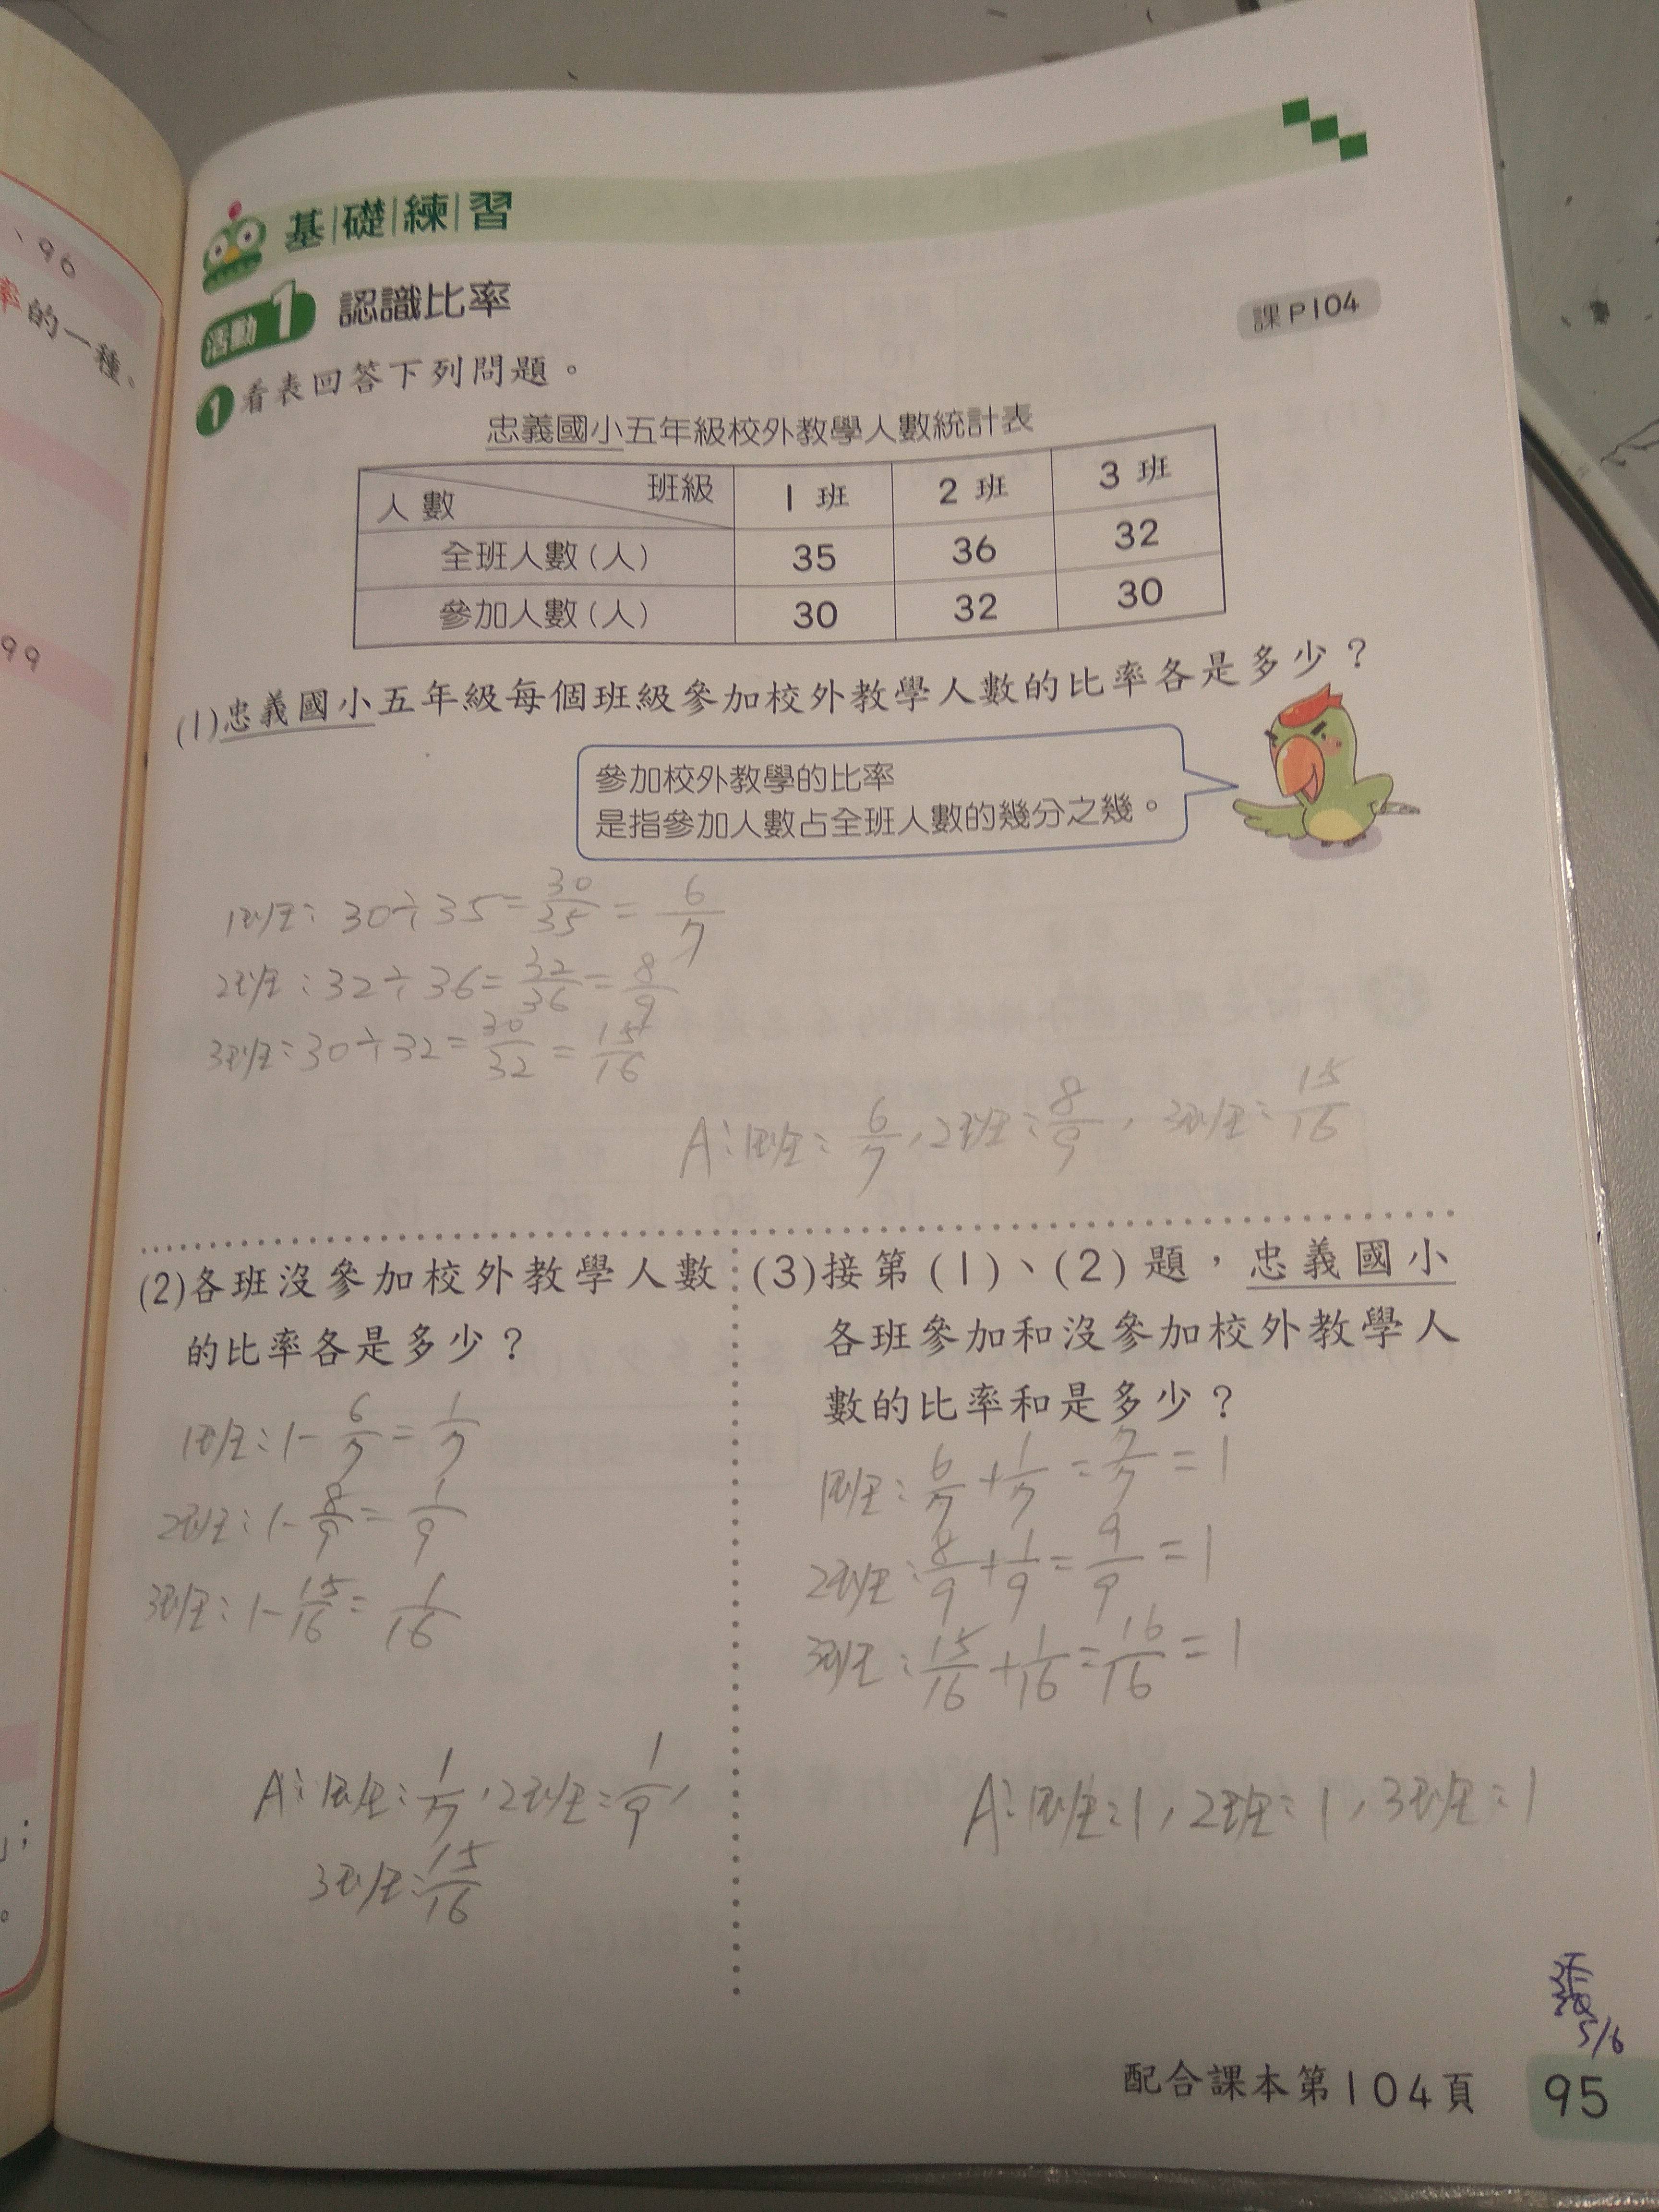 、96
率的一種。
99
」；
。
基礎練習
活動1 認識比率
課P104
1 看表回答下列問題。
忠義國小五年級校外教學人數統計表
人數 班級 1班 2班 3班
全班人數(人) 35 36 32
參加人數(人) 30 32 30
(1)忠義國小五年級每個班級參加校外教學人數的比率各是多少？
參加校外教學的比率
是指參加人數占全班人數的幾分之幾。
1班：30÷35=30/35=6/7
2班：32÷36=32/36=8/9
3班：30÷32=30/32=15/16
A：1班：6/7，2班：8/9，3班：15/16
(2)各班沒參加校外教學人數
的比率各是多少？
1班：1-6/7=1/7
2班：1-8/9=1/9
3班：1-15/16=1/16
A：1班：1/7，2班：1/9，
3班：15/16
(3)接第(1)、(2)題，忠義國小
各班參加和沒參加校外教學人
數的比率和是多少？
1班：6/7+1/7=7/7=1
2班：8/9+1/9=9/9=1
3班：15/16+1/16=16/16=1
A：1班：1，2班：1，3班：1
5/6
配合課本第104頁
95